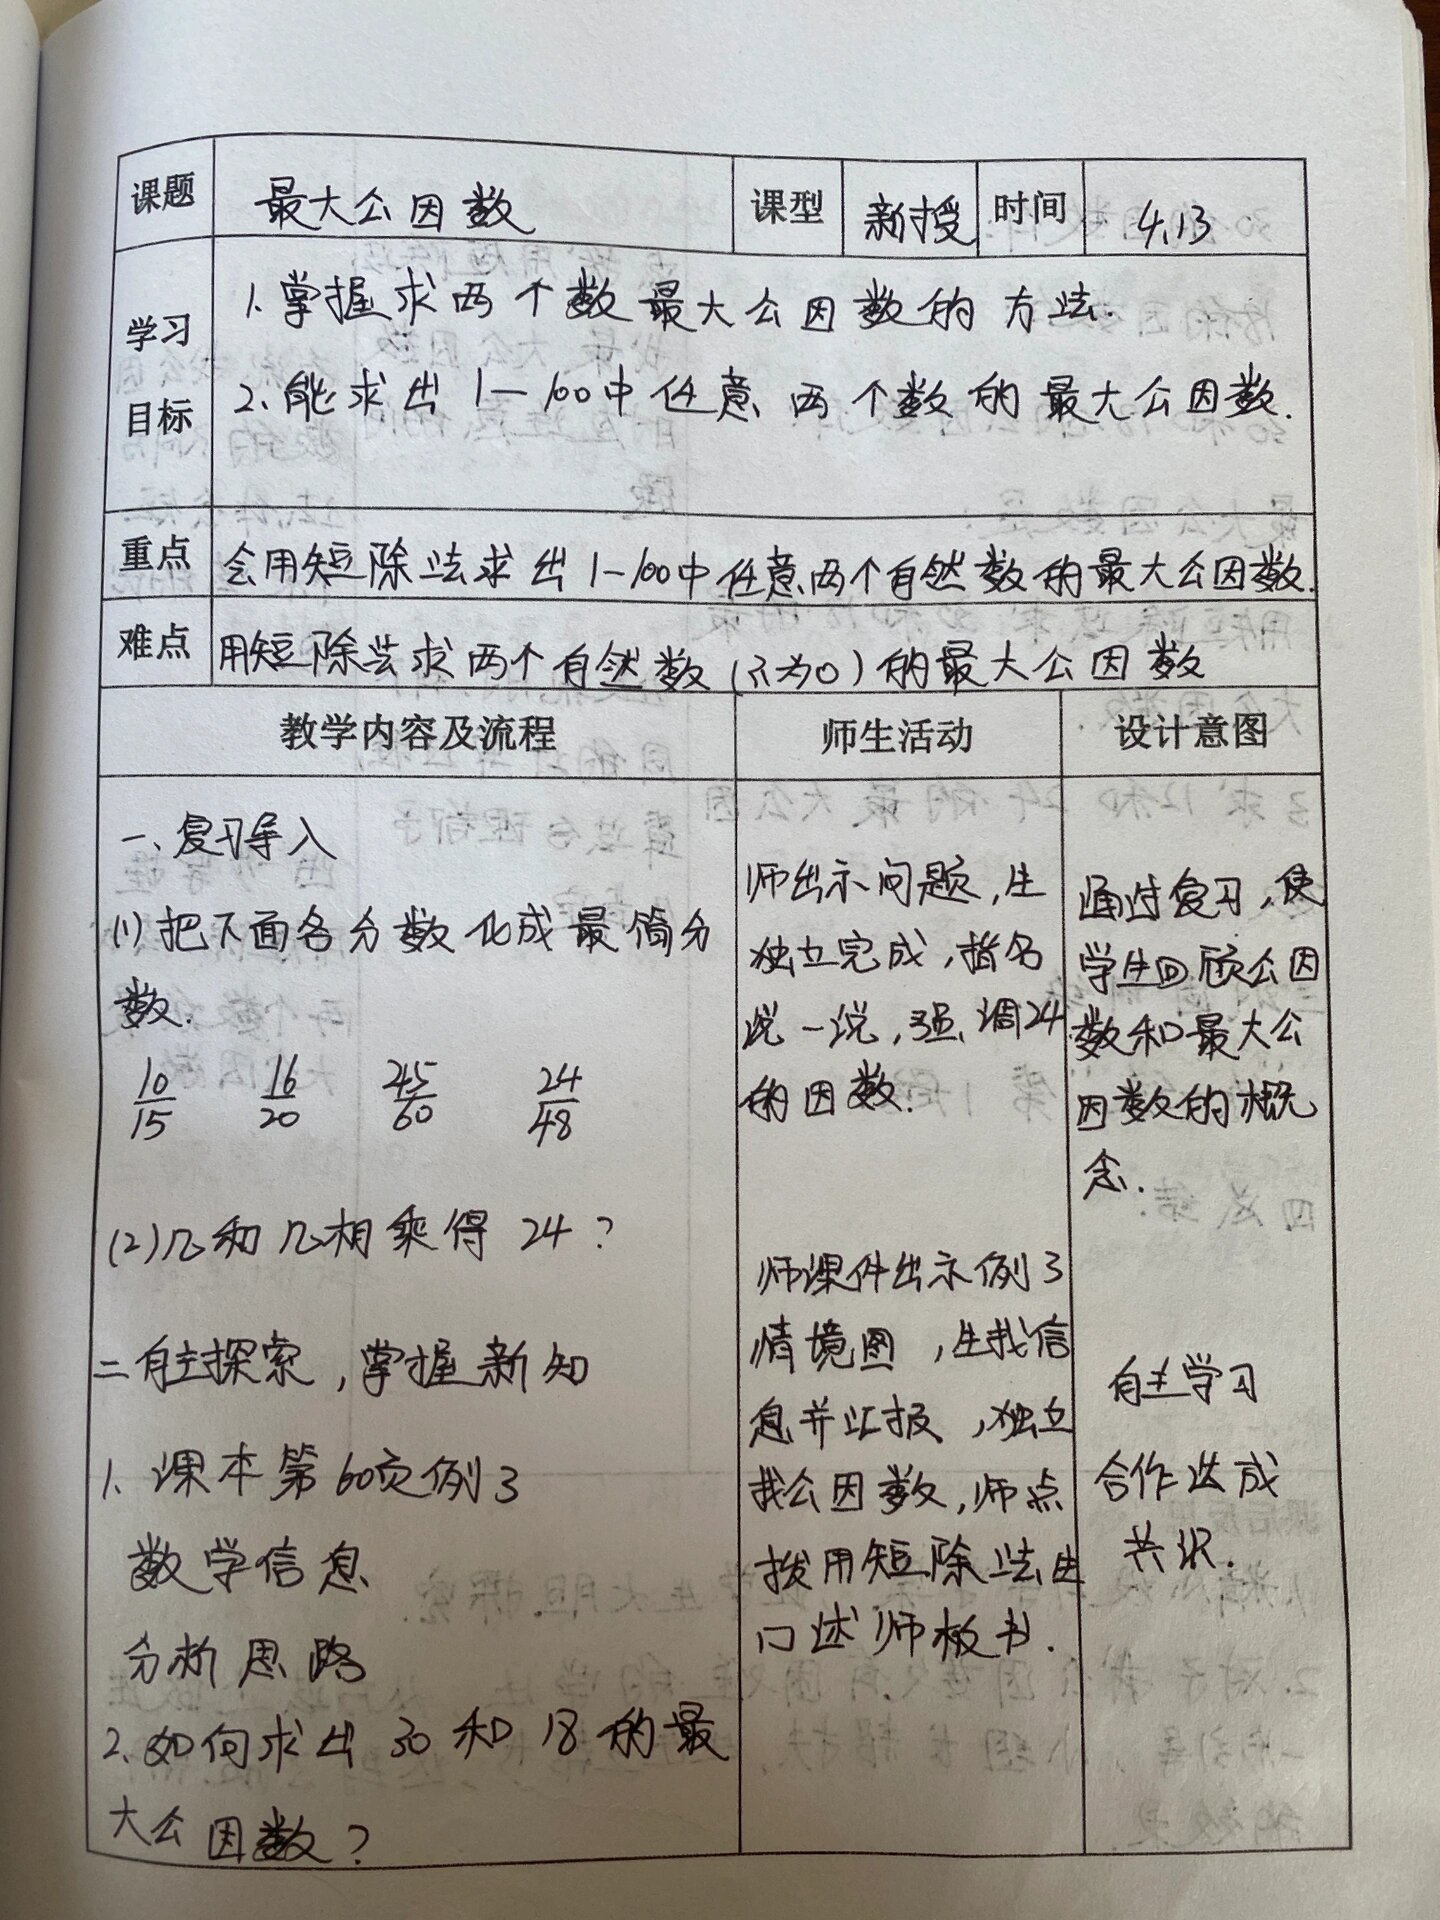 课题 最大公因数 课型 新授 时间 4.13
学习目标
1.掌握求两个数最大公因数的方法.
2.能求出1—100中任意两个数的最大公因数.
重点 会用短除法求出1—100中任意两个自然数的最大公因数.
难点 用短除法求两个自然数(不为0)的最大公因数
教学内容及流程 师生活动 设计意图
一、复习导入
(1)把下面各分数化成最简分
数.
10/15 16/20 45/60 24/48
(2)几和几相乘得24?
二自主探索,掌握新知
1.课本第60页例3
数学信息
分析思路
2.如何求出30和18的最
大公因数?
师出示问题,生
独立完成,指名
说一说,强调24
的因数.
师课件出示例3
情境图,生找信
息并汇报,独立
找公因数,师点
拨用短除法生
口述师板书.
通过复习,使
学生回顾公因
数和最大公
因数的概
念.
自主学习
合作达成
共识.